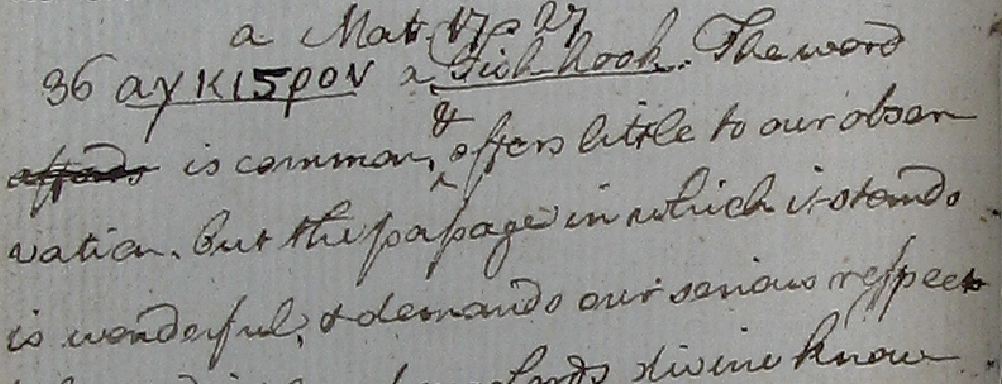 a Mat. 17. 27
36 αγκιςρον a Fish hook. The word
affords is common, & offers little to our obser
vation. but the passage in which it stands
is wonderful, & demands our serious respect
divine know